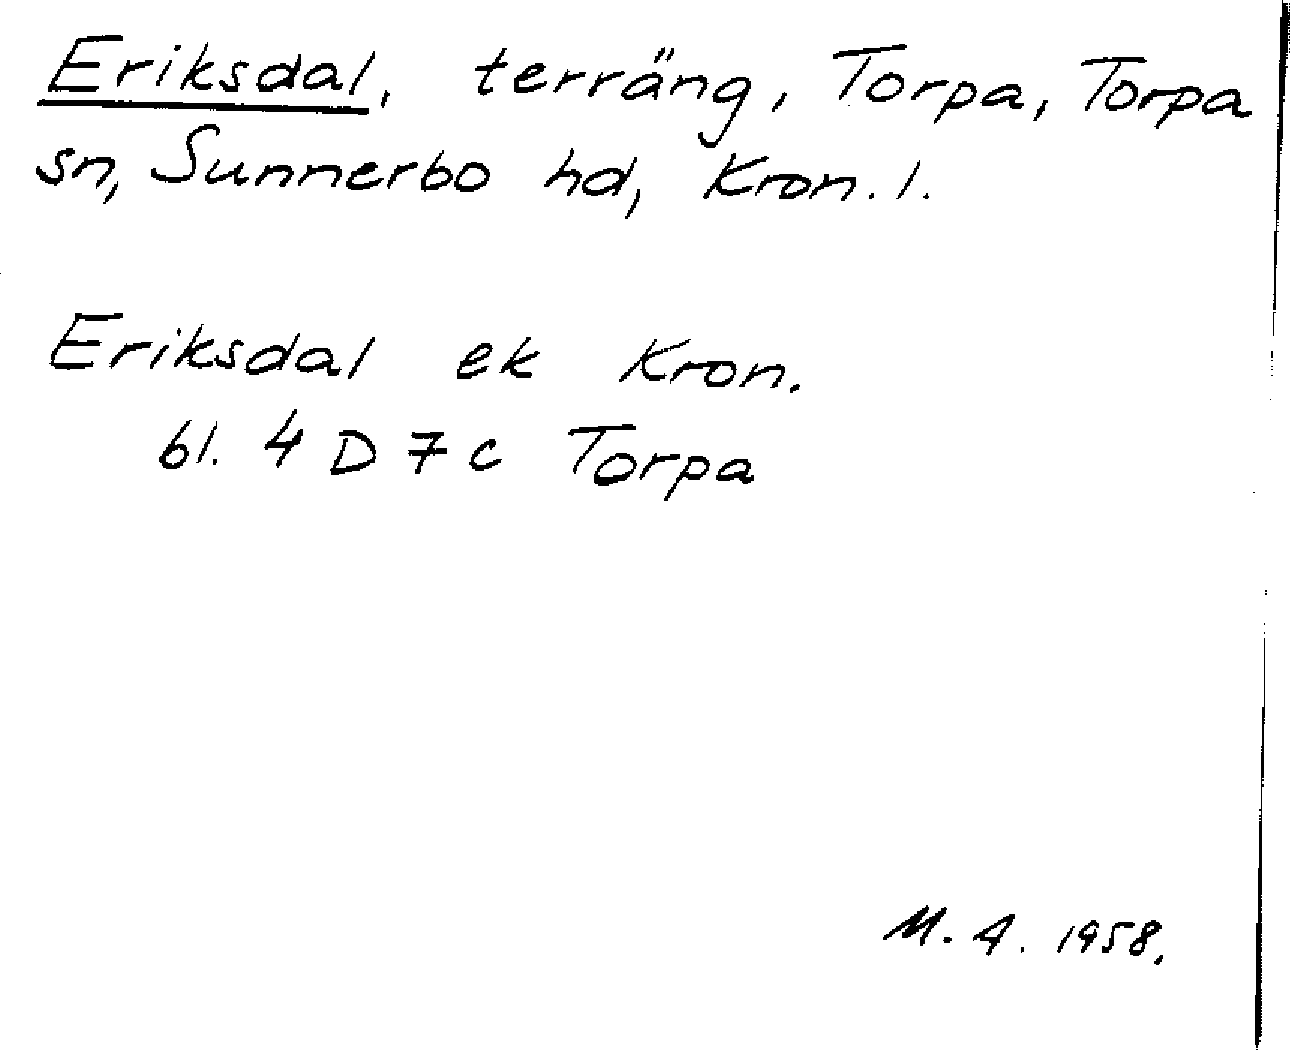 Eriksdal, terräng, Torpa, Torpa
sn, Sunnerbo hd, Kron. l.
Eriksdal ek Kron.
bl. 4 D 7 c Torpa
M. A. 1958.